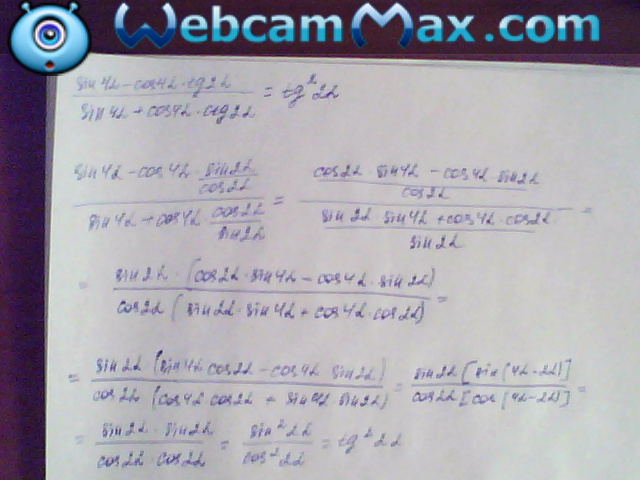 WebcamMax.com
(sin 4α - cos 4α · tg 2α) / (sin 4α + cos 4α · ctg 2α) = tg² 2α
(sin 4α - cos 4α · (sin 2α / cos 2α)) / (sin 4α + cos 4α · (cos 2α / sin 2α)) = ((cos 2α · sin 4α - cos 4α · sin 2α) / cos 2α) / ((sin 2α · sin 4α + cos 4α · cos 2α) / sin 2α) =
= (sin 2α · (cos 2α · sin 4α - cos 4α · sin 2α)) / (cos 2α (sin 2α · sin 4α + cos 4α · cos 2α)) =
= (sin 2α · (sin 4α cos 2α - cos 4α sin 2α)) / (cos 2α (cos 4α cos 2α + sin 4α sin 2α)) = (sin 2α [sin (4α - 2α)]) / (cos 2α [cos (4α - 2α)]) =
= (sin 2α · sin 2α) / (cos 2α · cos 2α) = sin² 2α / cos² 2α = tg² 2α